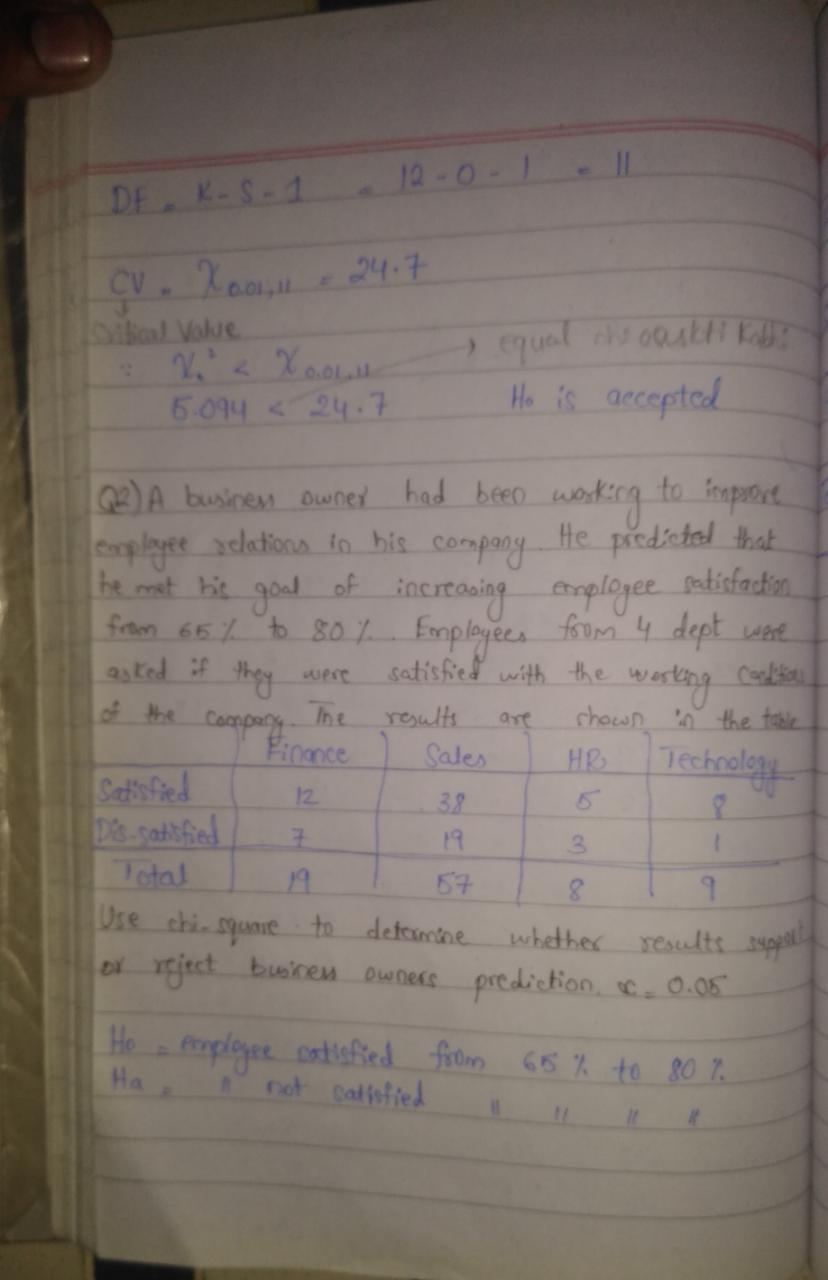 DF = K-S-1 = 12-0-1 = 11
CV = X0.01,11 = 24.7
Critical Value
∵ X.² < X0.01,11 → equal
5.094 < 24.7 Ho is accepted
Q2) A business owner had been working to improve
employee relations in his company. He predicted that
he met his goal of increasing employee satisfaction
from 65% to 80%. Employees from 4 dept were
asked if they were satisfied with the working Conditions
of the Company. The results are shown in the table
Finance Sales HR Technology
Satisfied 12 38 5 8
Dis-satisfied 7 19 3 1
Total 19 57 8 9
Use chi-square to determine whether results support
or reject business owners prediction. ∝ = 0.05
Ho = employee satisfied from 65% to 80%.
Ha = " not satisfied " " " "